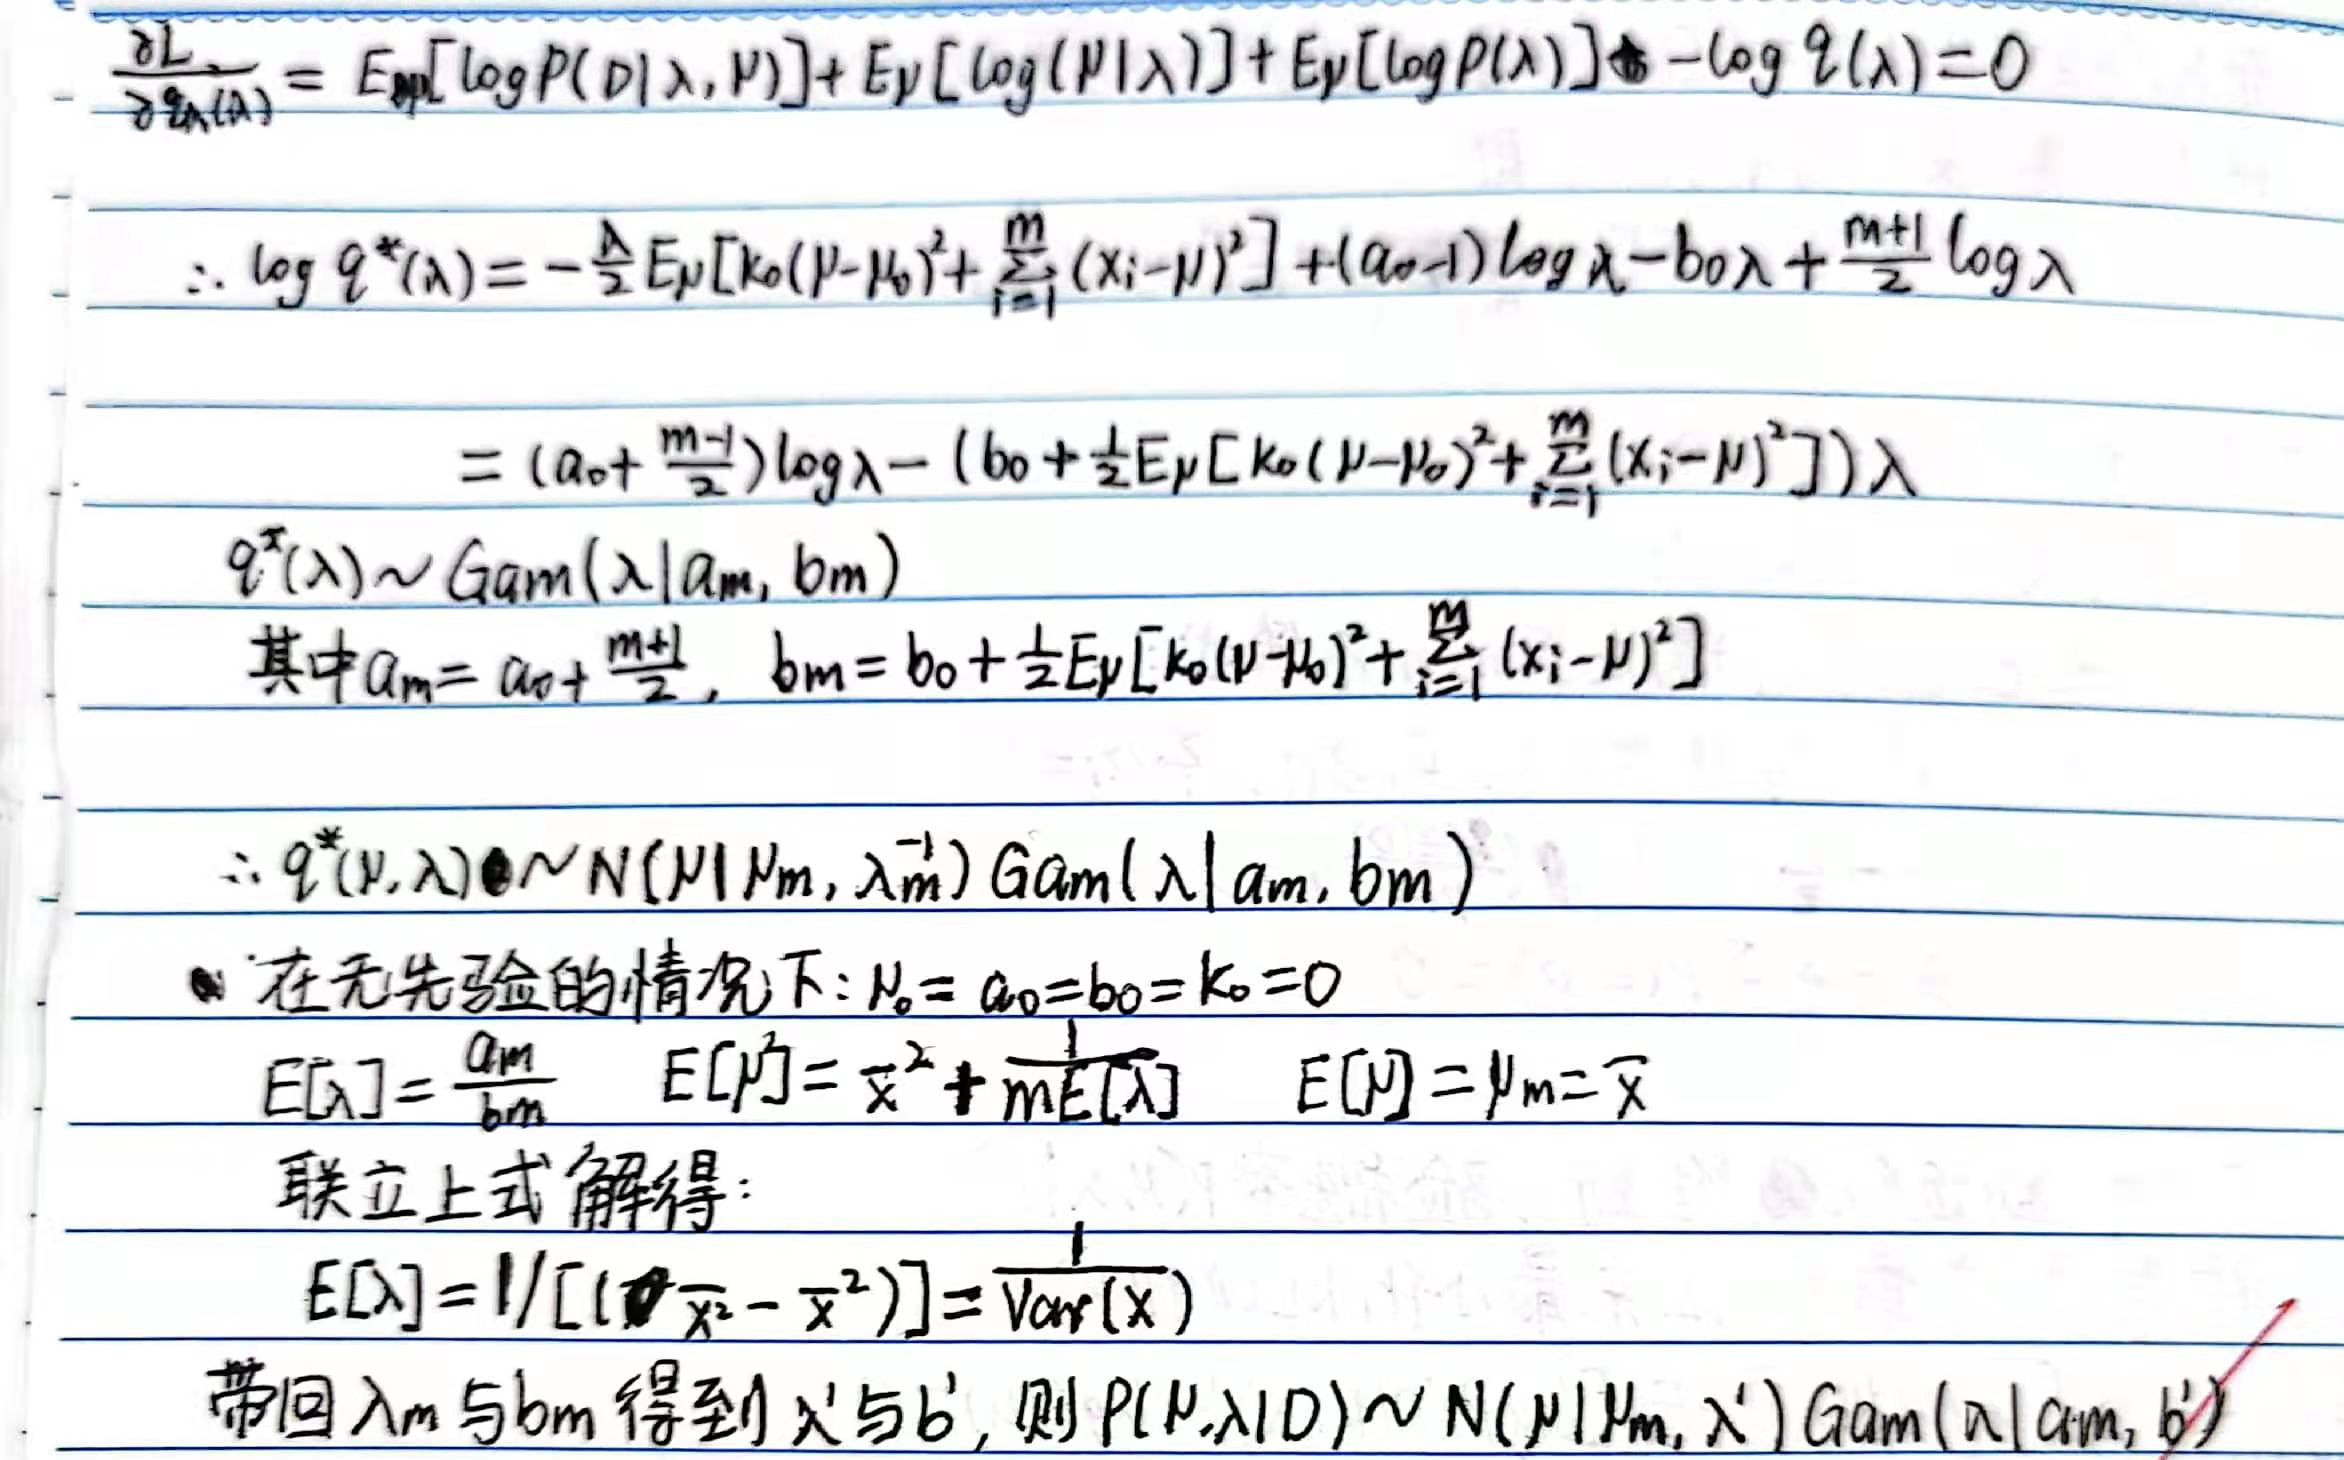 ∂L/∂q_λ(λ) = E_μ[log P(D|λ,μ)] + E_μ[log(μ|λ)] + E_μ[log P(λ)] - log q(λ) = 0
∴ log q*(λ) = -λ/2 E_μ[k₀(μ-μ₀)² + Σ_{i=1}^{m} (x_i-μ)²] + (a₀-1) log λ - b₀λ + (m+1)/2 log λ
= (a₀ + (m-1)/2) log λ - (b₀ + 1/2 E_μ[k₀(μ-μ₀)² + Σ_{i=1}^{m} (x_i-μ)²]) λ
q*(λ) ~ Gam(λ|a_m, b_m)
其中 a_m = a₀ + (m+1)/2, b_m = b₀ + 1/2 E_μ[k₀(μ-μ₀)² + Σ_{i=1}^{m} (x_i-μ)²]
∴ q*(μ,λ) ~ N(μ|μ_m, λ_m⁻¹) Gam(λ|a_m, b_m)
在无先验的情况下: μ₀ = a₀ = b₀ = k₀ = 0
E[λ] = a_m/b_m E[μ²] = x̄² + 1/(mE[λ]) E[μ] = μ_m = x̄
联立上式解得:
E[λ] = 1/[(\overline{x²} - x̄²)] = 1/Var(x)
带回 λ_m 与 b_m 得到 λ' 与 b', 则 P(μ,λ|D) ~ N(μ|μ_m, λ') Gam(λ|a_m, b')